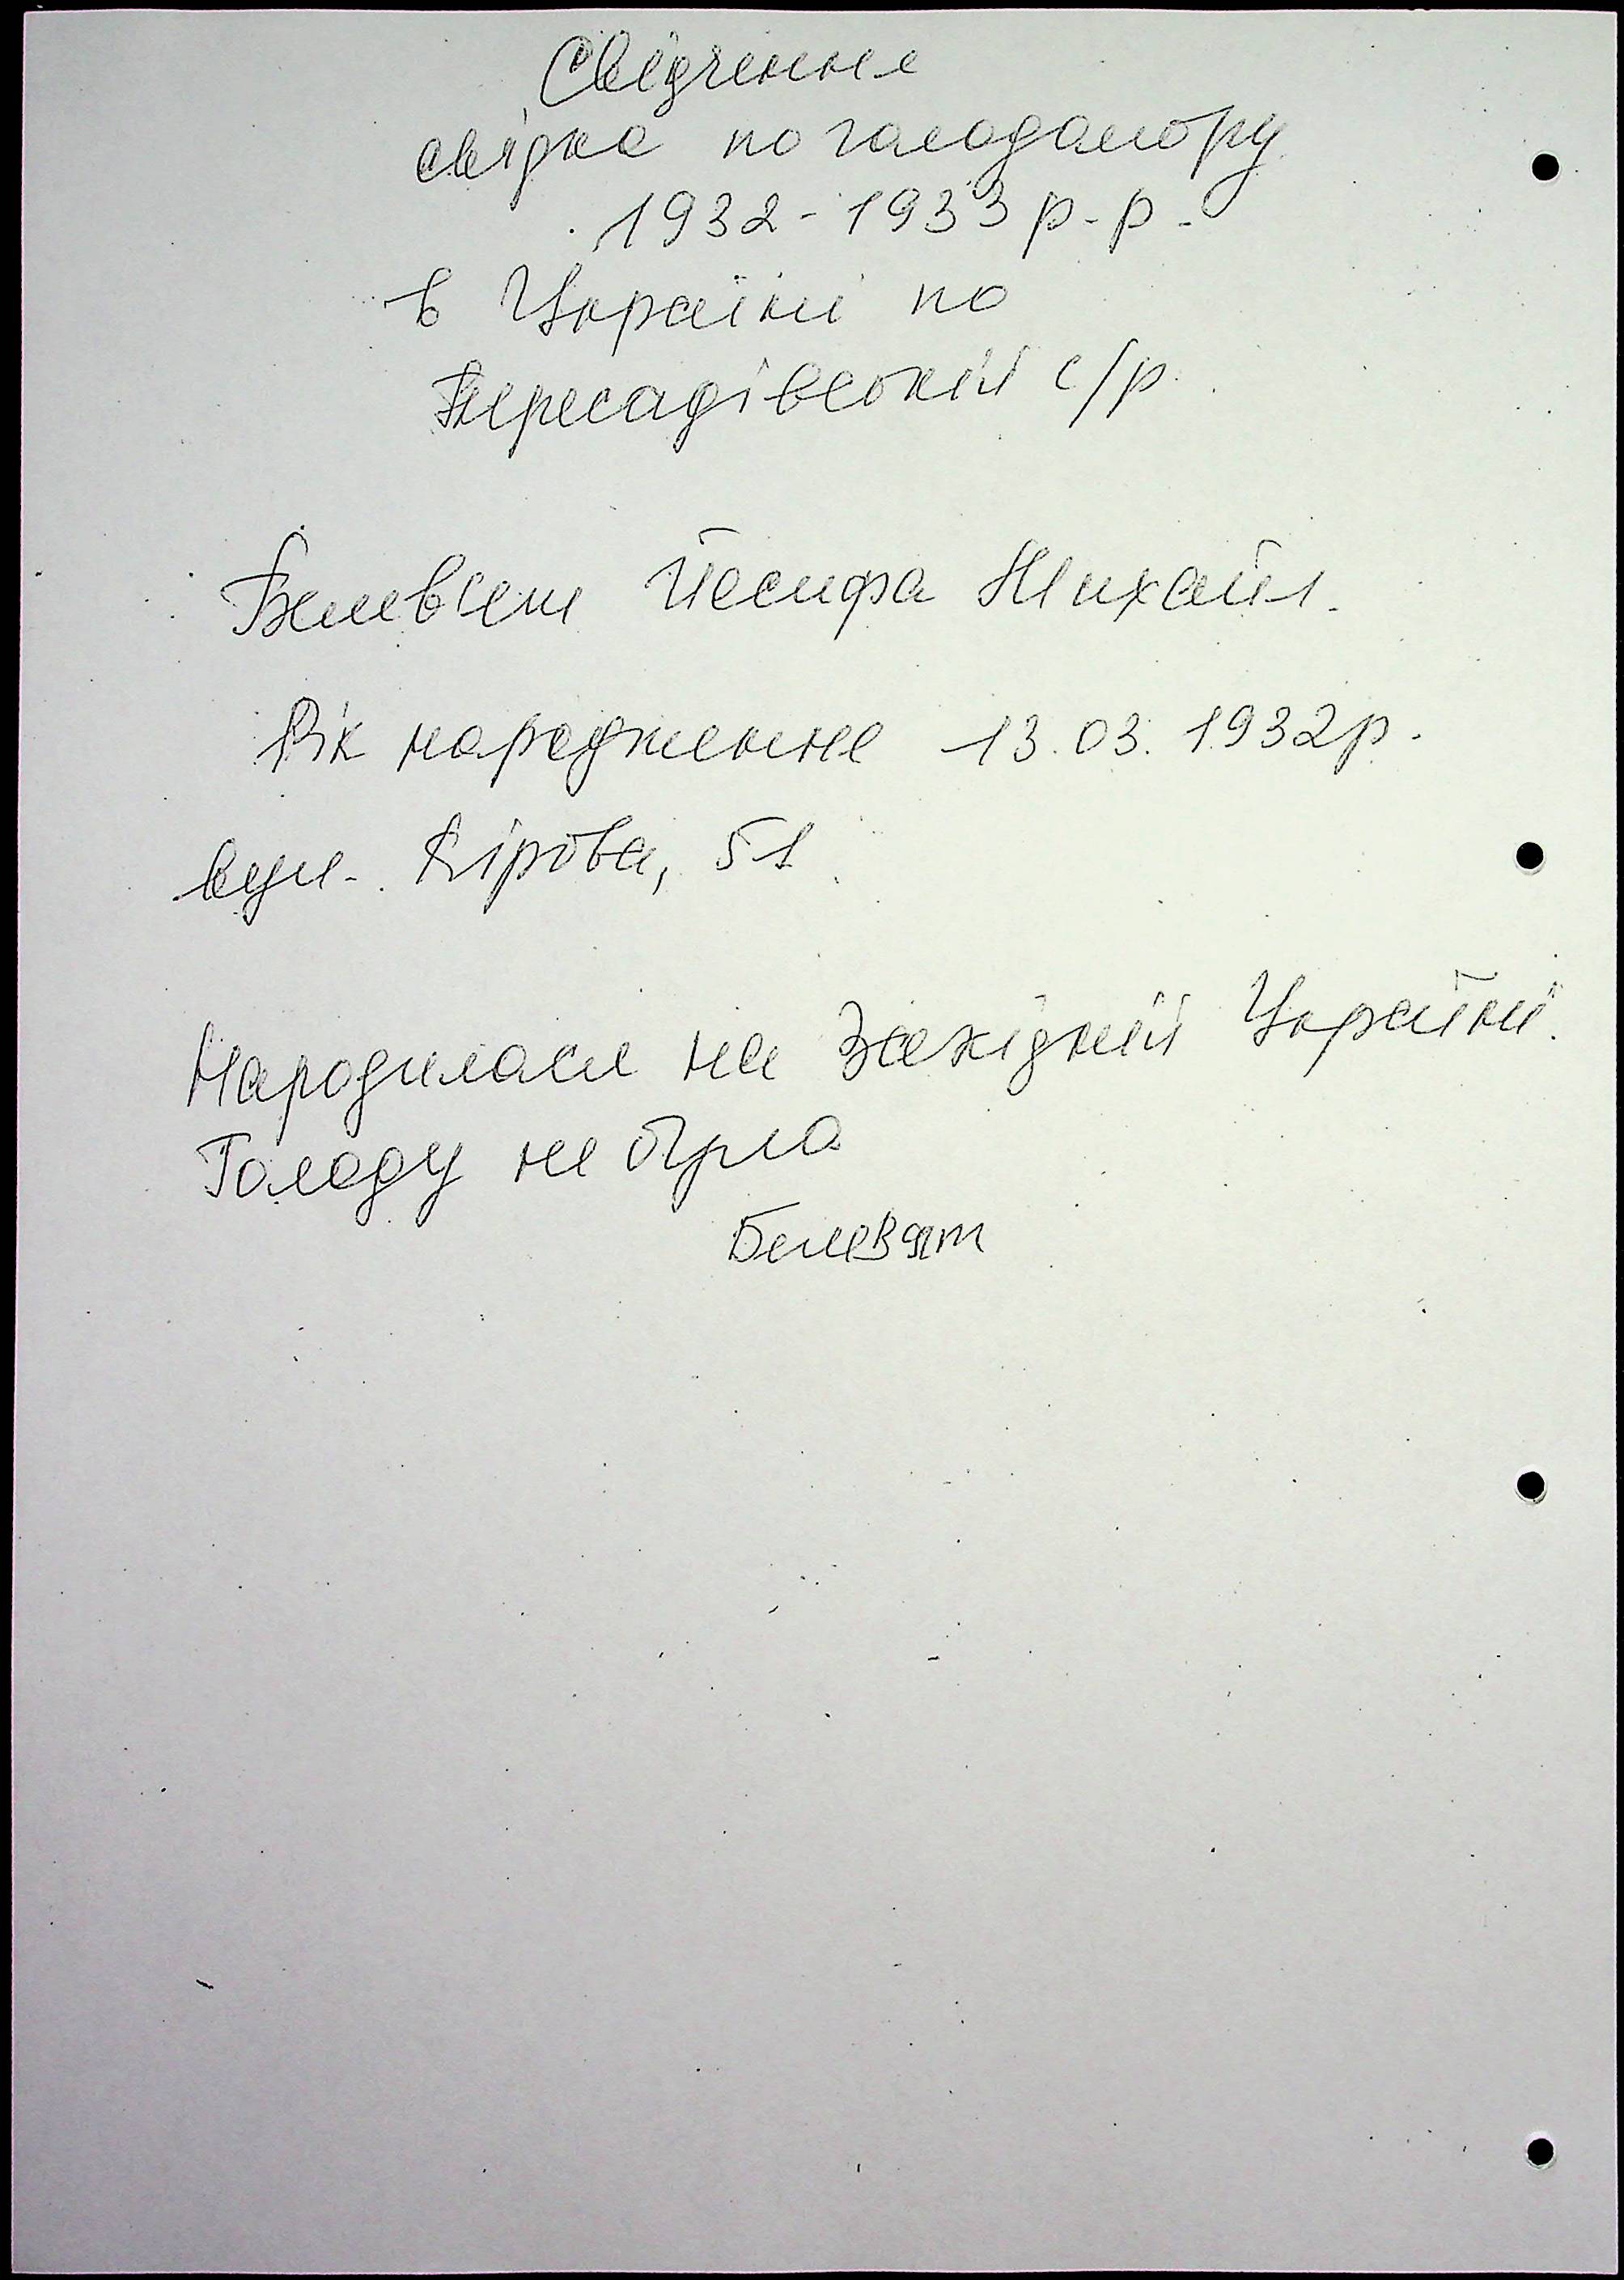 Свідчення
свідка по голодомору
1932-1933 р-р.
в Україні по
Пересадівській с/р.
Йосифа Михайл.
Рік народження 13.03.1932р.
вул. Кірова, 51
Народилася на Західній Україні.
Голоду не було
Белевят